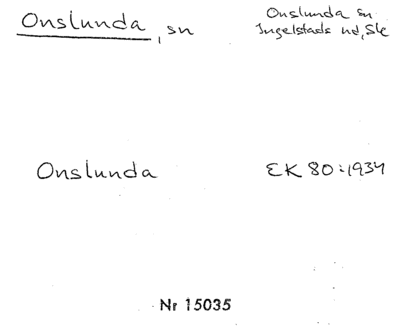 Onslunda, sn
Onslunda sn
Ingelstads hd, Sk
Onslunda
EK 80:1934
Nr 15035